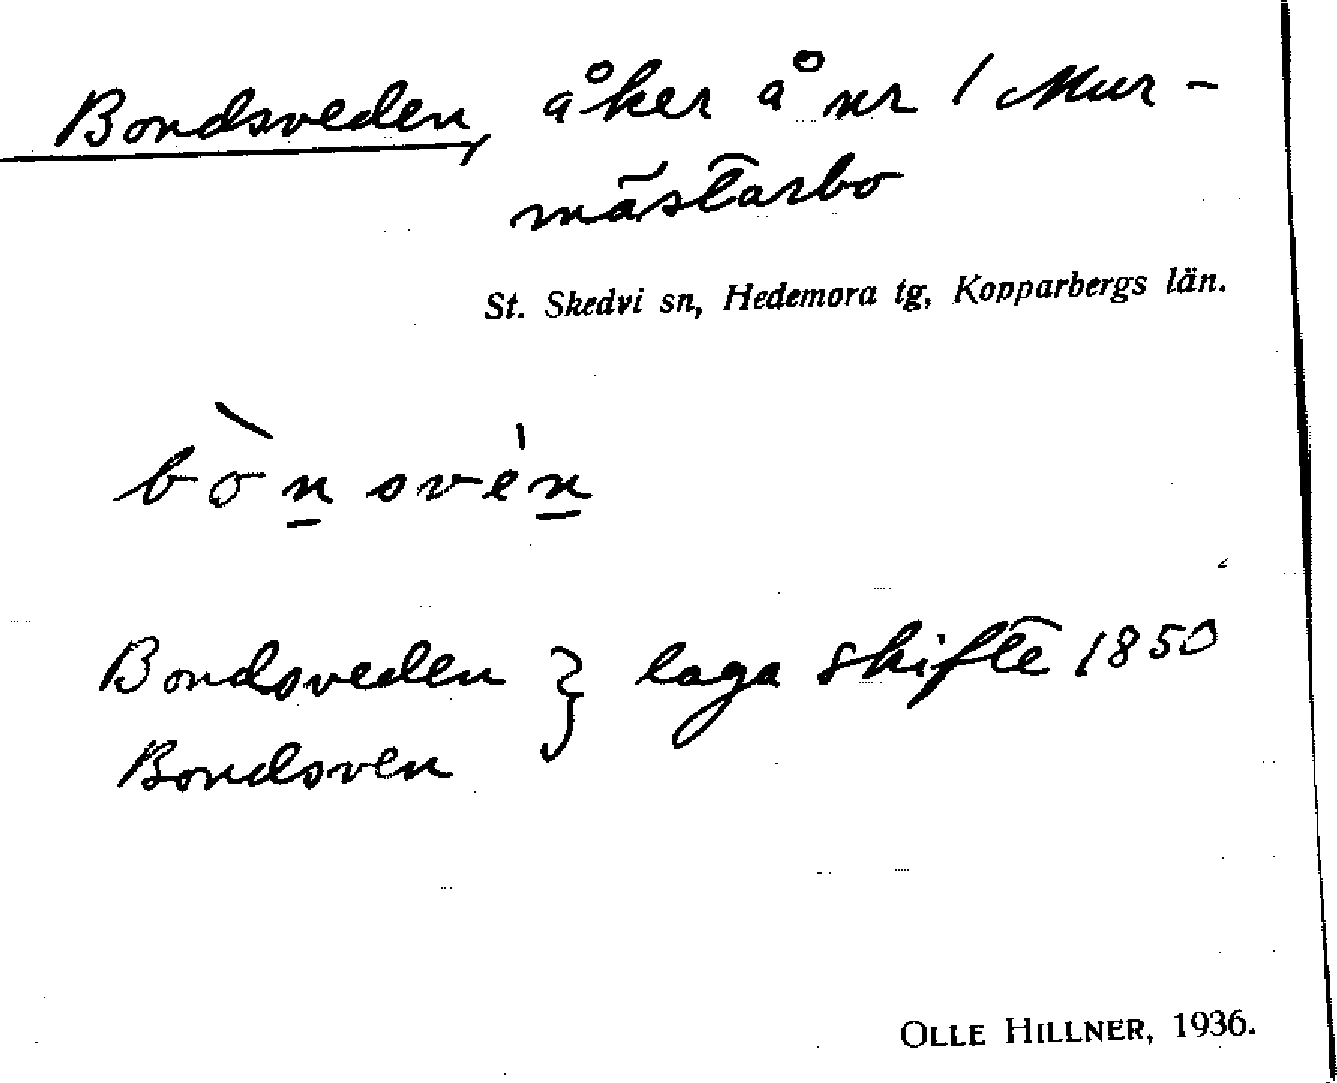 Bondsveden, åker å nr 1 Mur-
mästarbo
St. Skedvi sn, Hedemora tg, Kopparbergs län.
bònsvén
Bondsveden } laga skifte 1850
Bondsven
OLLE HILLNER, 1936.